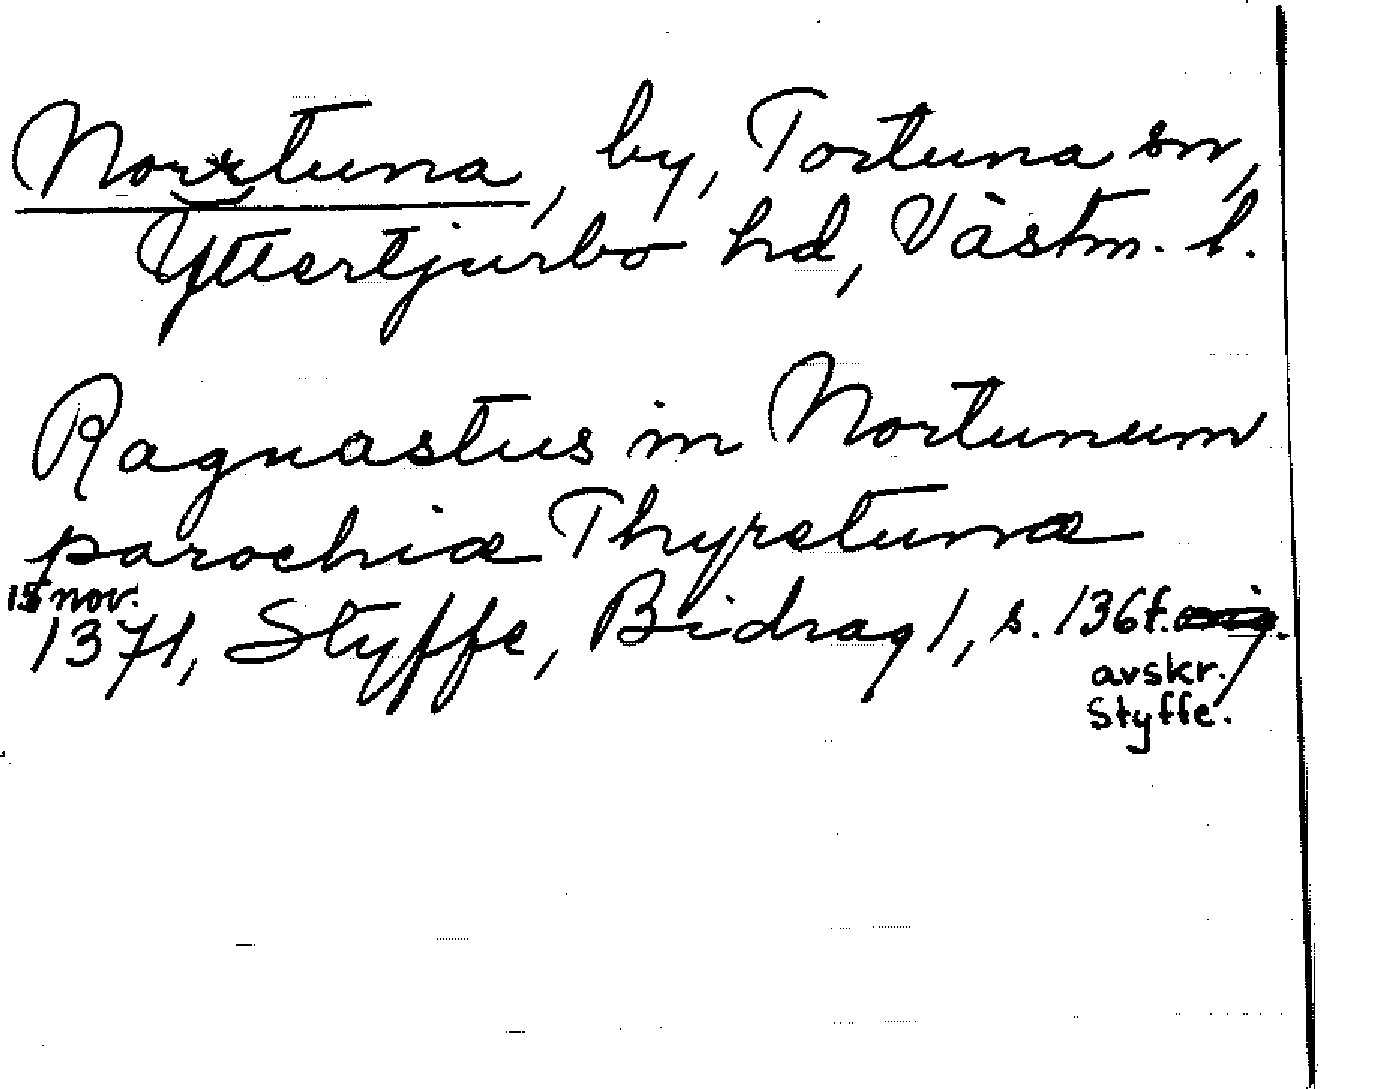 Nortuna, by, Tortuna sn,
Yttertjurbo hd, Västm. l.
Ragnastus in Nortunum
parochiæ Thyretunæ
15 nov.
1371, Styffe, Bidrag 1, s. 136f.
avskr.
Styffe.